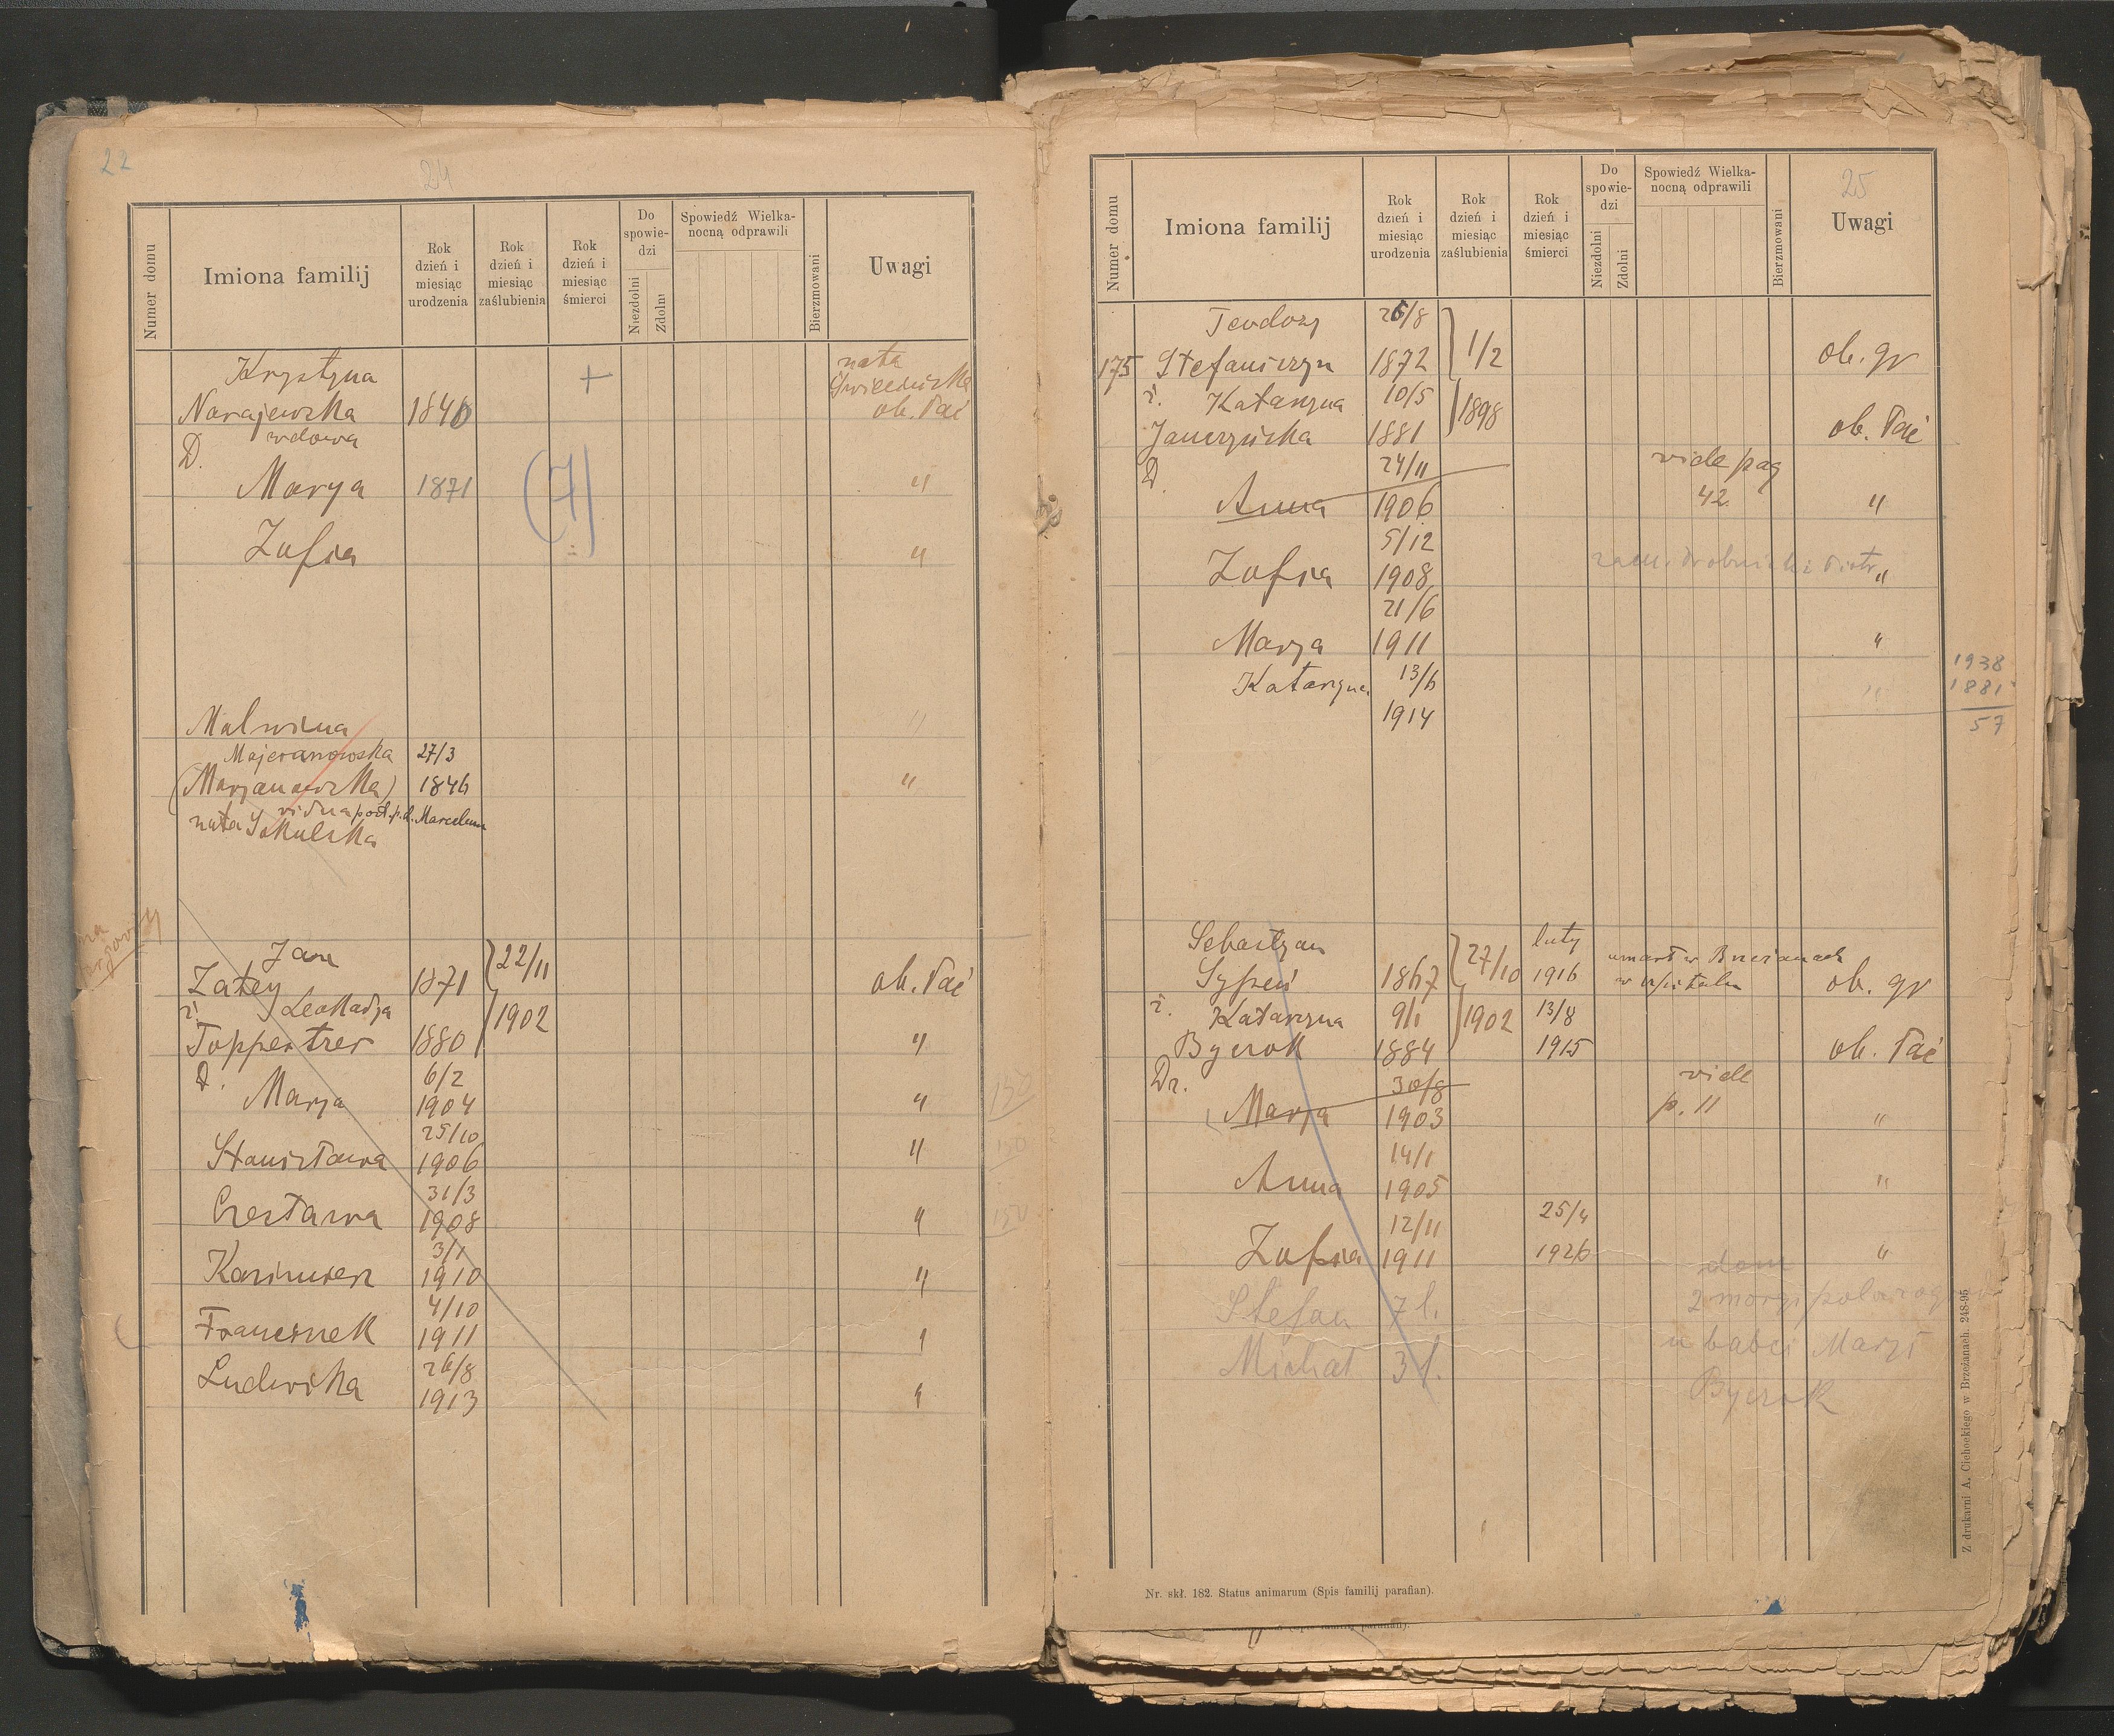 22
24
Numer domu
Imiona familij
Rok dzień i miesiąc urodzenia
Rok dzień i miesiąc zaślubienia
Rok dzień i miesiąc śmierci
Do spowiedzi
Niezdolni
Zdolni
Spowiedź Wielkanocną odprawili
Bierzmowani
Uwagi
Krystyna + nata
Narajewska 1840 ob. łać
D. wdowa
Marya 1871 (7) "
Zofia "
Malwina "
Majeranowska 27/3
(Marjanowska) 1846 "
vidua post p.d. Marcelum
nata Sokulska
Jan 22/11
Zatey 1871 ob. łać
ż. Leokadja 1902
Toppertzer 1880 "
D. 6/2
Marja 1904 " 150
25/10
Stanisława 1906 " 150
31/3
Czesława 1908 " 150
3/1
Kazimierz 1910 "
4/10
Franciszek 1911 "
26/8
Ludwika 1913 "
25
Numer domu
Imiona familij
Rok dzień i miesiąc urodzenia
Rok dzień i miesiąc zaślubienia
Rok dzień i miesiąc śmierci
Do spowiedzi
Niezdolni
Zdolni
Spowiedź Wielkanocną odprawili
Bierzmowani
Uwagi
Teodozy 26/8
175 Stefaniszyn 1872 1/2 ob. gr
ż. Katarzyna 10/5 1898
Janczyńska 1881 ob. łać
D. 24/11 vide pag
Anna 1906 42 "
5/12
Zofia 1908 zam. Piotr "
21/6
Marja 1911 "
Katarzyna 13/6 " 1938
1914 1881
57
Sebastyan luty umarł w Brzeżanach
Sypeń 1867 27/10 1916 w szpitalu ob. gr
ż. Katarzyna 9/1 1902 13/8
Byczok 1884 1915 ob. łać
Dz. 30/8 vide
Marja 1903 p. 11 "
14/1
Anna 1905 "
12/11 25/4
Zofia 1911 1926 "
dom
Stefan 7 l. 2 morgi pola
Michał 3 l. u babci Marji
Byczok
Nr. skł. 182. Status animarum (Spis familij parafian).
Z drukarni A. Ciehockiego w Brzeżanach. 248-95